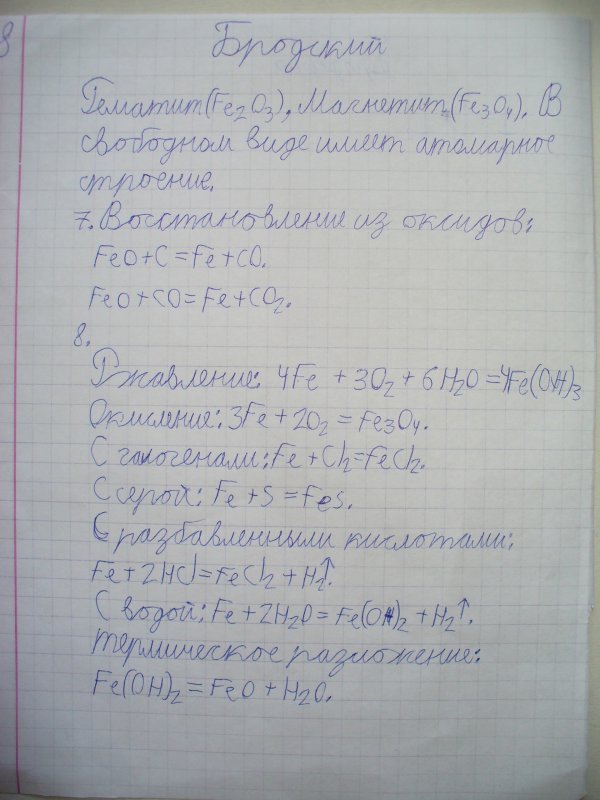 Бродский
Гематит(Fe₂O₃), Магнетит(Fe₃O₄). В
свободном виде имеет атомарное
строение.
7. Восстановление из оксидов:
FeO+C=Fe+CO.
FeO+CO=Fe+CO₂.
8.
Ржавление: 4Fe + 3O₂ + 6H₂O =4Fe(OH)₃
Окисление: 3Fe + 2O₂ = Fe₃O₄.
С галогенами: Fe + Cl₂=FeCl₂.
С серой: Fe + S = FeS.
С разбавленными кислотами:
Fe+2HCl=FeCl₂ + H₂↑.
С водой: Fe + 2H₂O = Fe(OH)₂ + H₂↑.
Термическое разложение:
Fe(OH)₂ = FeO + H₂O.